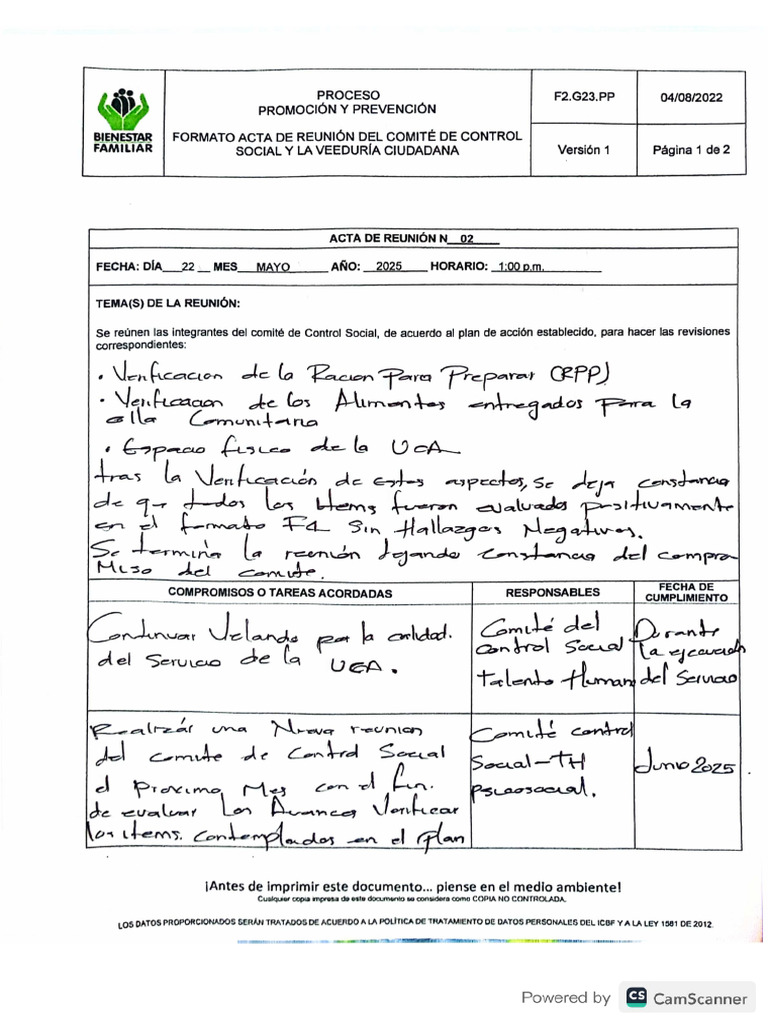 BIENESTAR
FAMILIAR
PROCESO
PROMOCIÓN Y PREVENCIÓN
FORMATO ACTA DE REUNIÓN DEL COMITÉ DE CONTROL
SOCIAL Y LA VEEDURÍA CIUDADANA
F2.G23.PP
04/08/2022
Versión 1
Página 1 de 2
ACTA DE REUNIÓN N__02____
FECHA: DÍA___22 __ MES___MAYO______ AÑO:__2025____ HORARIO:_1:00 p.m.________
TEMA(S) DE LA REUNIÓN:
Se reúnen las integrantes del comité de Control Social, de acuerdo al plan de acción establecido, para hacer las revisiones
correspondientes:
• Verificacion de la Racion Para Preparar (RPP)
• Verificacion de los Alimentos entregados para la
olla Comunitaria
• Espacio fisico de la UCA
tras la Verificación de estos aspectos, se deja constancia
de que todos los items fueron evaluados positivamente
en el formato F4 Sin Hallazgos Negativos.
Se termina la reunión dejando constancia del compro
miso del comite.
COMPROMISOS O TAREAS ACORDADAS
RESPONSABLES
FECHA DE
CUMPLIMIENTO
Continuar Velando por la calidad.
del Servicio de la UCA.
Comité del
Control Social
talento Humano
Durante
la ejecución
del Servicio
Realizár una Nueva reunion
del comite de Control Social
el Proximo Mes con el fin.
de evaluar los Avances Verificar
los items. contemplados en el plan
Comité control
Social-TH
Psicosocial.
Junio 2025.
¡Antes de imprimir este documento... piense en el medio ambiente!
Cualquier copia impresa de este documento se considera como COPIA NO CONTROLADA.
LOS DATOS PROPORCIONADOS SERÁN TRATADOS DE ACUERDO A LA POLÍTICA DE TRATAMIENTO DE DATOS PERSONALES DEL ICBF Y A LA LEY 1581 DE 2012.
Powered by CS CamScanner